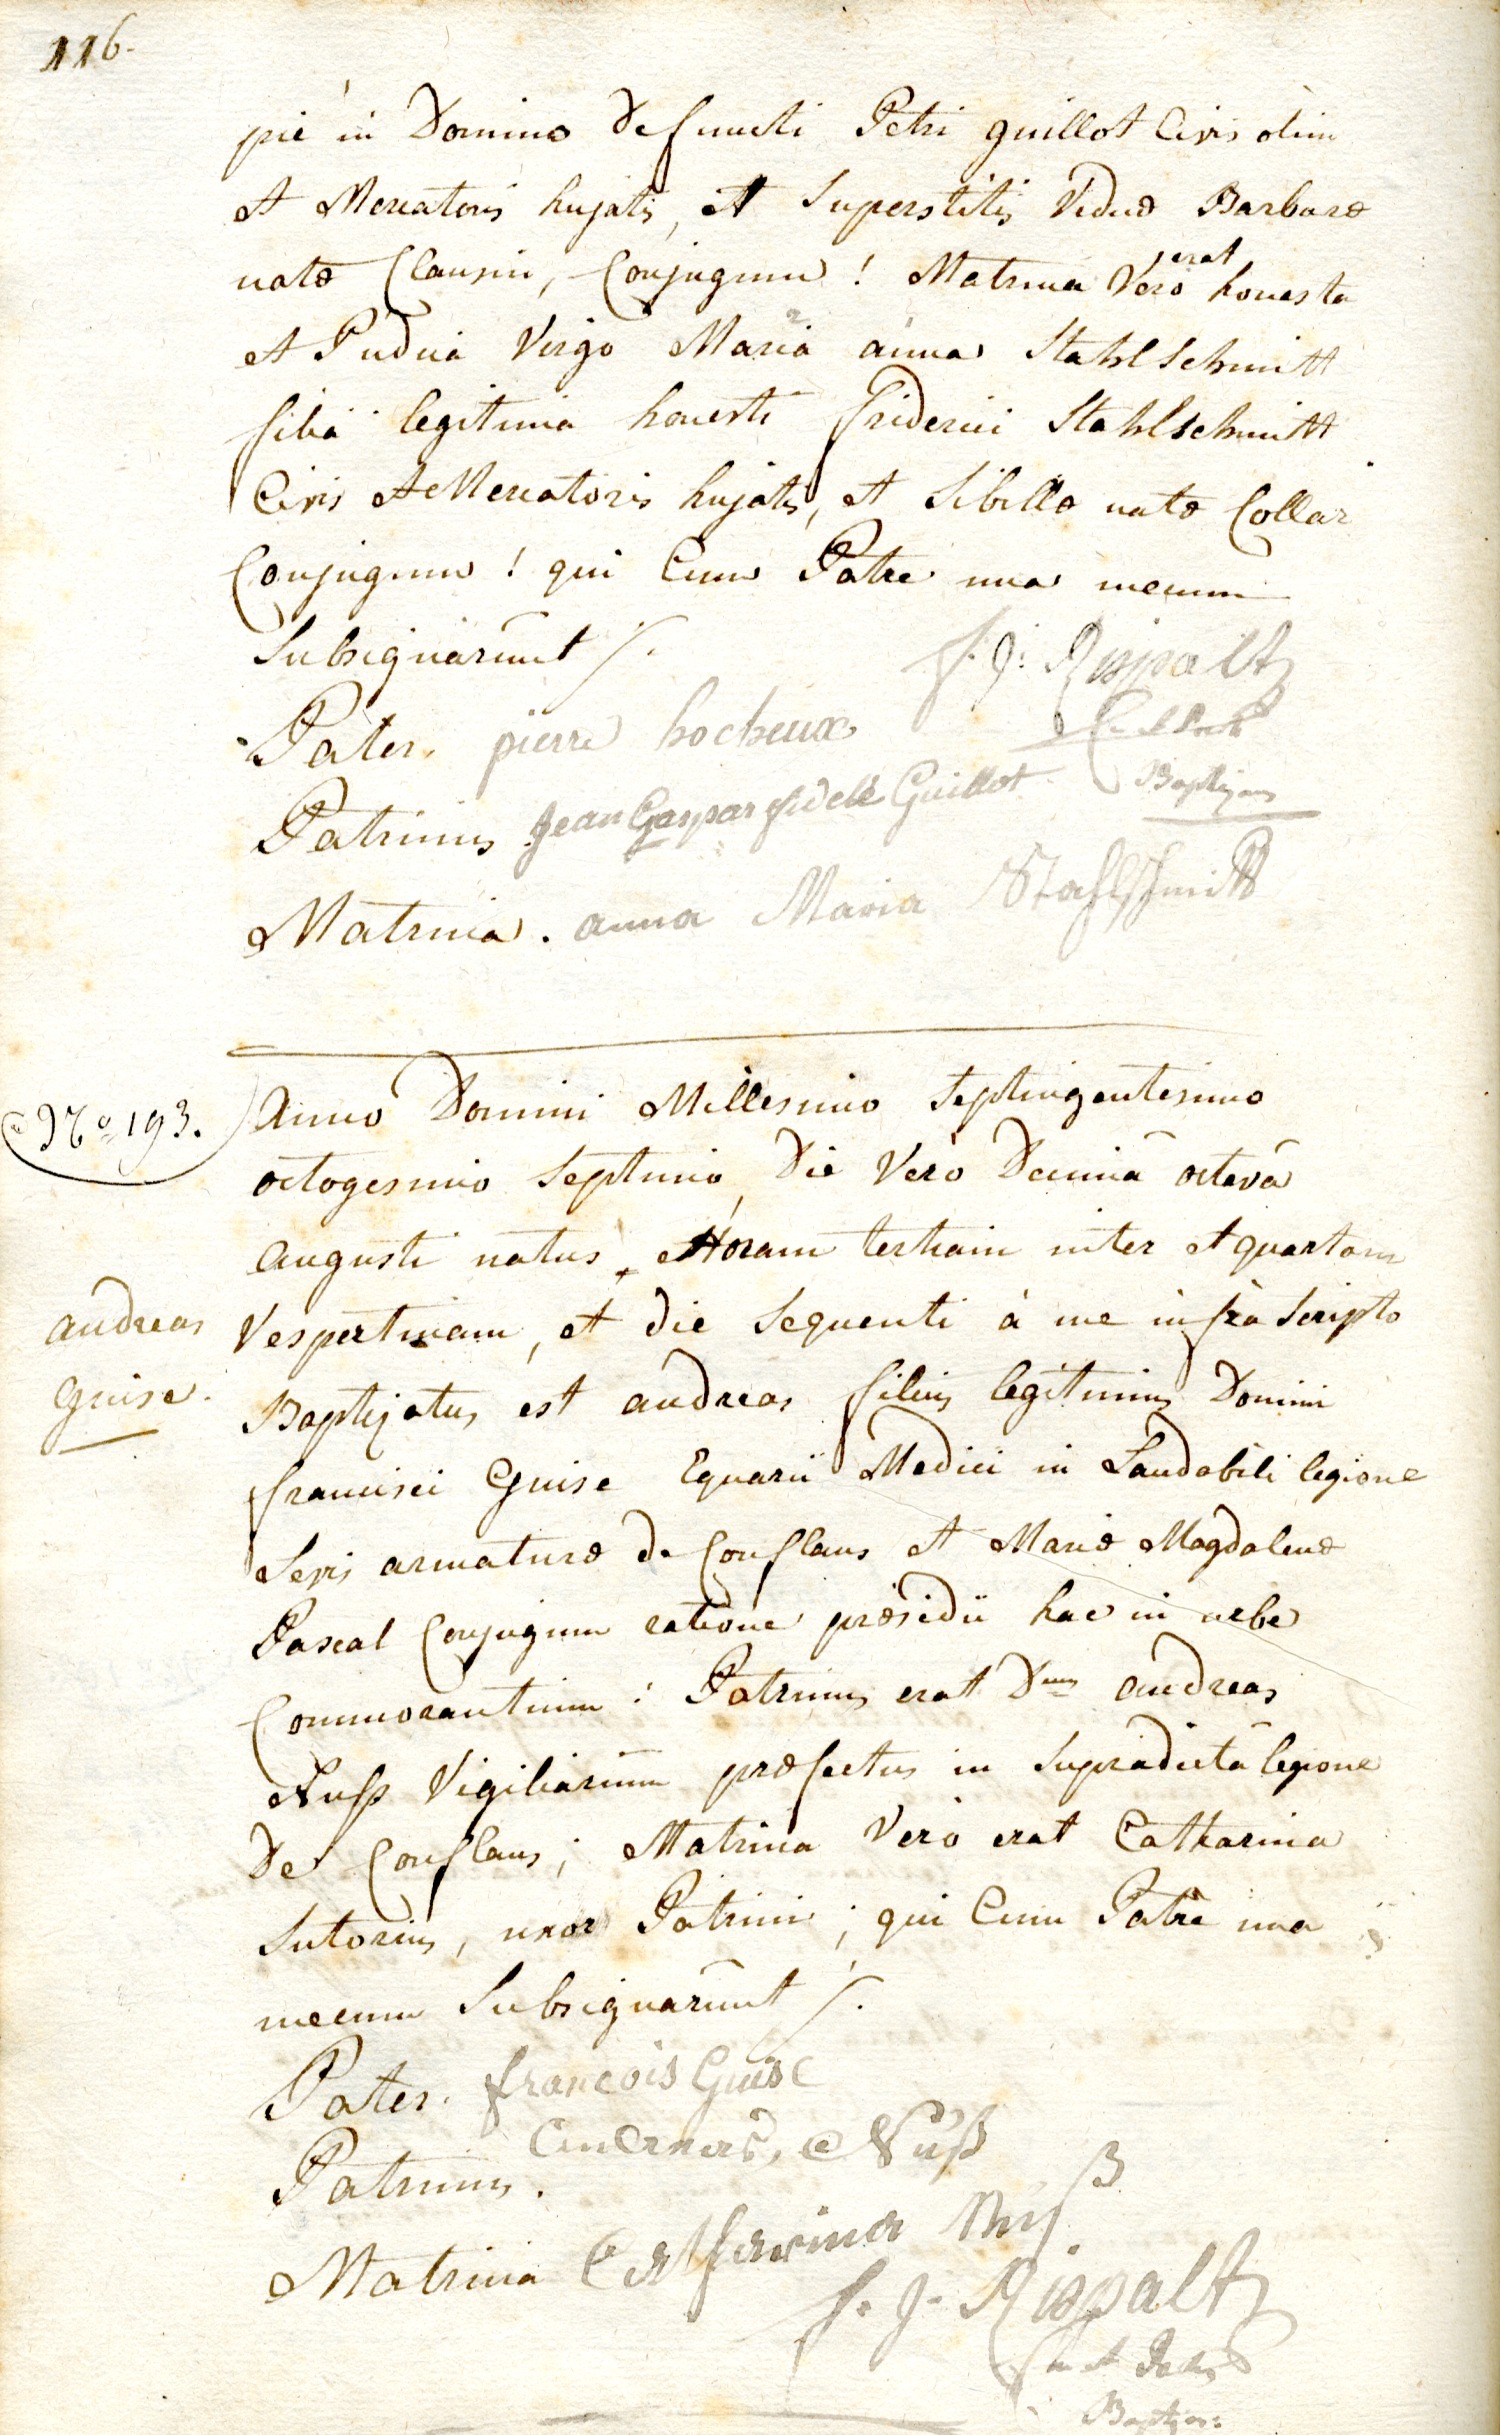 116.
pié in Domino defuncti Petri guillot Civis olim
et Mercatoris hujatis, et Superstitis Viduæ Barbaræ
natæ Clausin, Conjugum! Matrina Vero erat honesta
et Pudica Virgo Maria anna Stahlschmitt
filia legitima honesti friderici Stahlschmitt
Civis et Mercatoris hujatis, et Sibillæ natæ Collar
Conjugum! qui Cum Patre una mecum
Subsignarunt ./.
f. J: Rispaltz
Pater. pierre hocheux
Baptizans
Patrinus. Jean Gaspar fidelé Guillot
Matrina. anna Maria Stahlschmitt
Nº 193.
Anno Domini Millesimo Septingentesimo
octogesimo Septimo, Die Vero Decima octava
Augusti natus, Horam tertiam inter et quartam
andreas
Vespertinam, et die Sequenti à me infra Scripto
Guise.
Baptizatus est andreas filius legitimus Domini
francisci Guise Equarii Medici in Laudabili legione
Levis armaturæ de Conflans et Mariæ Magdalenæ
Pascal Conjugum ratione præsidii hac in urbe
Commorantium: Patrinus erat Dnus andreas
Nuß Vigiliarum præfectus in Supradicta legione
De Conflans; Matrina Vero erat Catharina
Sutorius, uxor Patrini; qui Cum Patre una
mecum Subsignarunt ./.
Pater. francois Guise
Andreas Nuß
Patrinus.
Matrina Catharina Nuß
f. J. Rispaltz
Baptizans